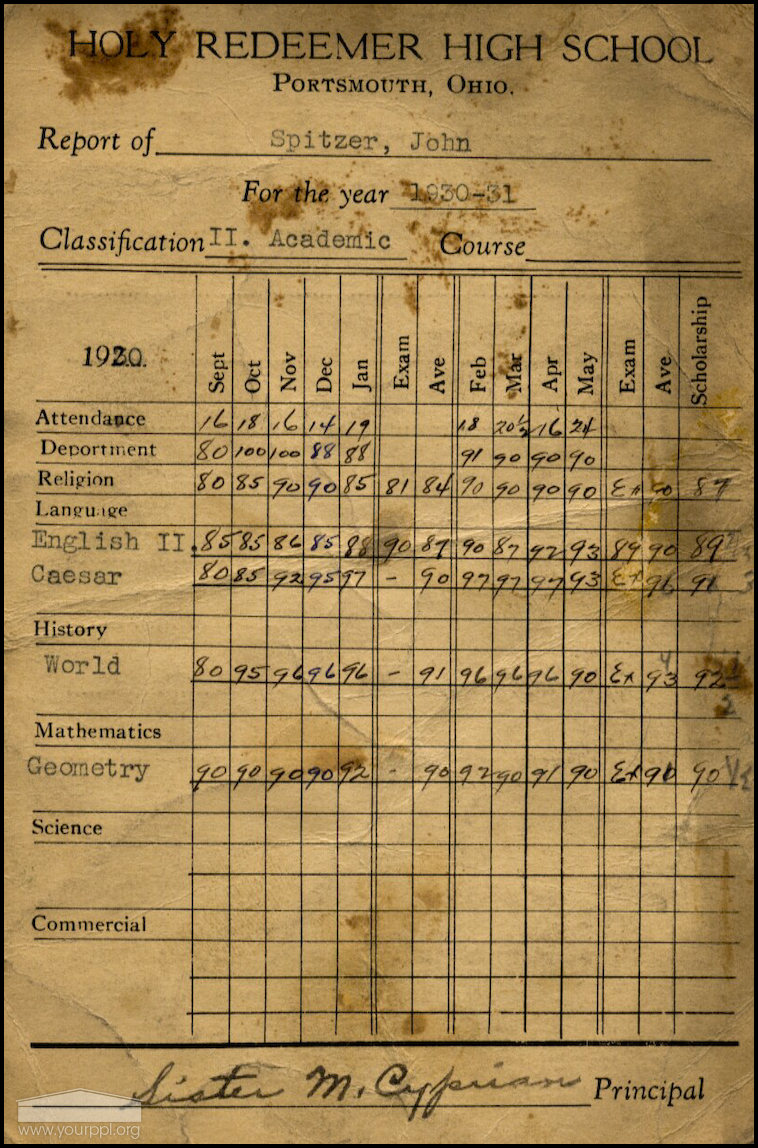 HOLY REDEEMER HIGH SCHOOL
PORTSMOUTH, OHIO.
Report of Spitzer, John
For the year 1930-31
Classification II. Academic Course
1930 Sept Oct Nov Dec Jan Exam Ave Feb Mar Apr May Exam Ave Scholarship
Attendance 16 18 16 14 19 18 20½ 16 21
Deportment 80 100 100 88 88 91 90 90 90
Religion 80 85 90 90 85 81 84 90 90 90 90 Ex 90 87
Language
English II. 85 85 86 85 88 90 87 90 87 92 93 89 90 89
Caesar 80 85 92 95 97 - 90 97 97 97 93 Ex 96 91
History
World 80 95 96 96 96 - 91 96 96 96 90 Ex 93 92
Mathematics
Geometry 90 90 90 90 92 - 90 92 90 91 90 Ex 90 90 1/2
Science
Commercial
Sister M. Cyprian Principal
www.yourppl.org